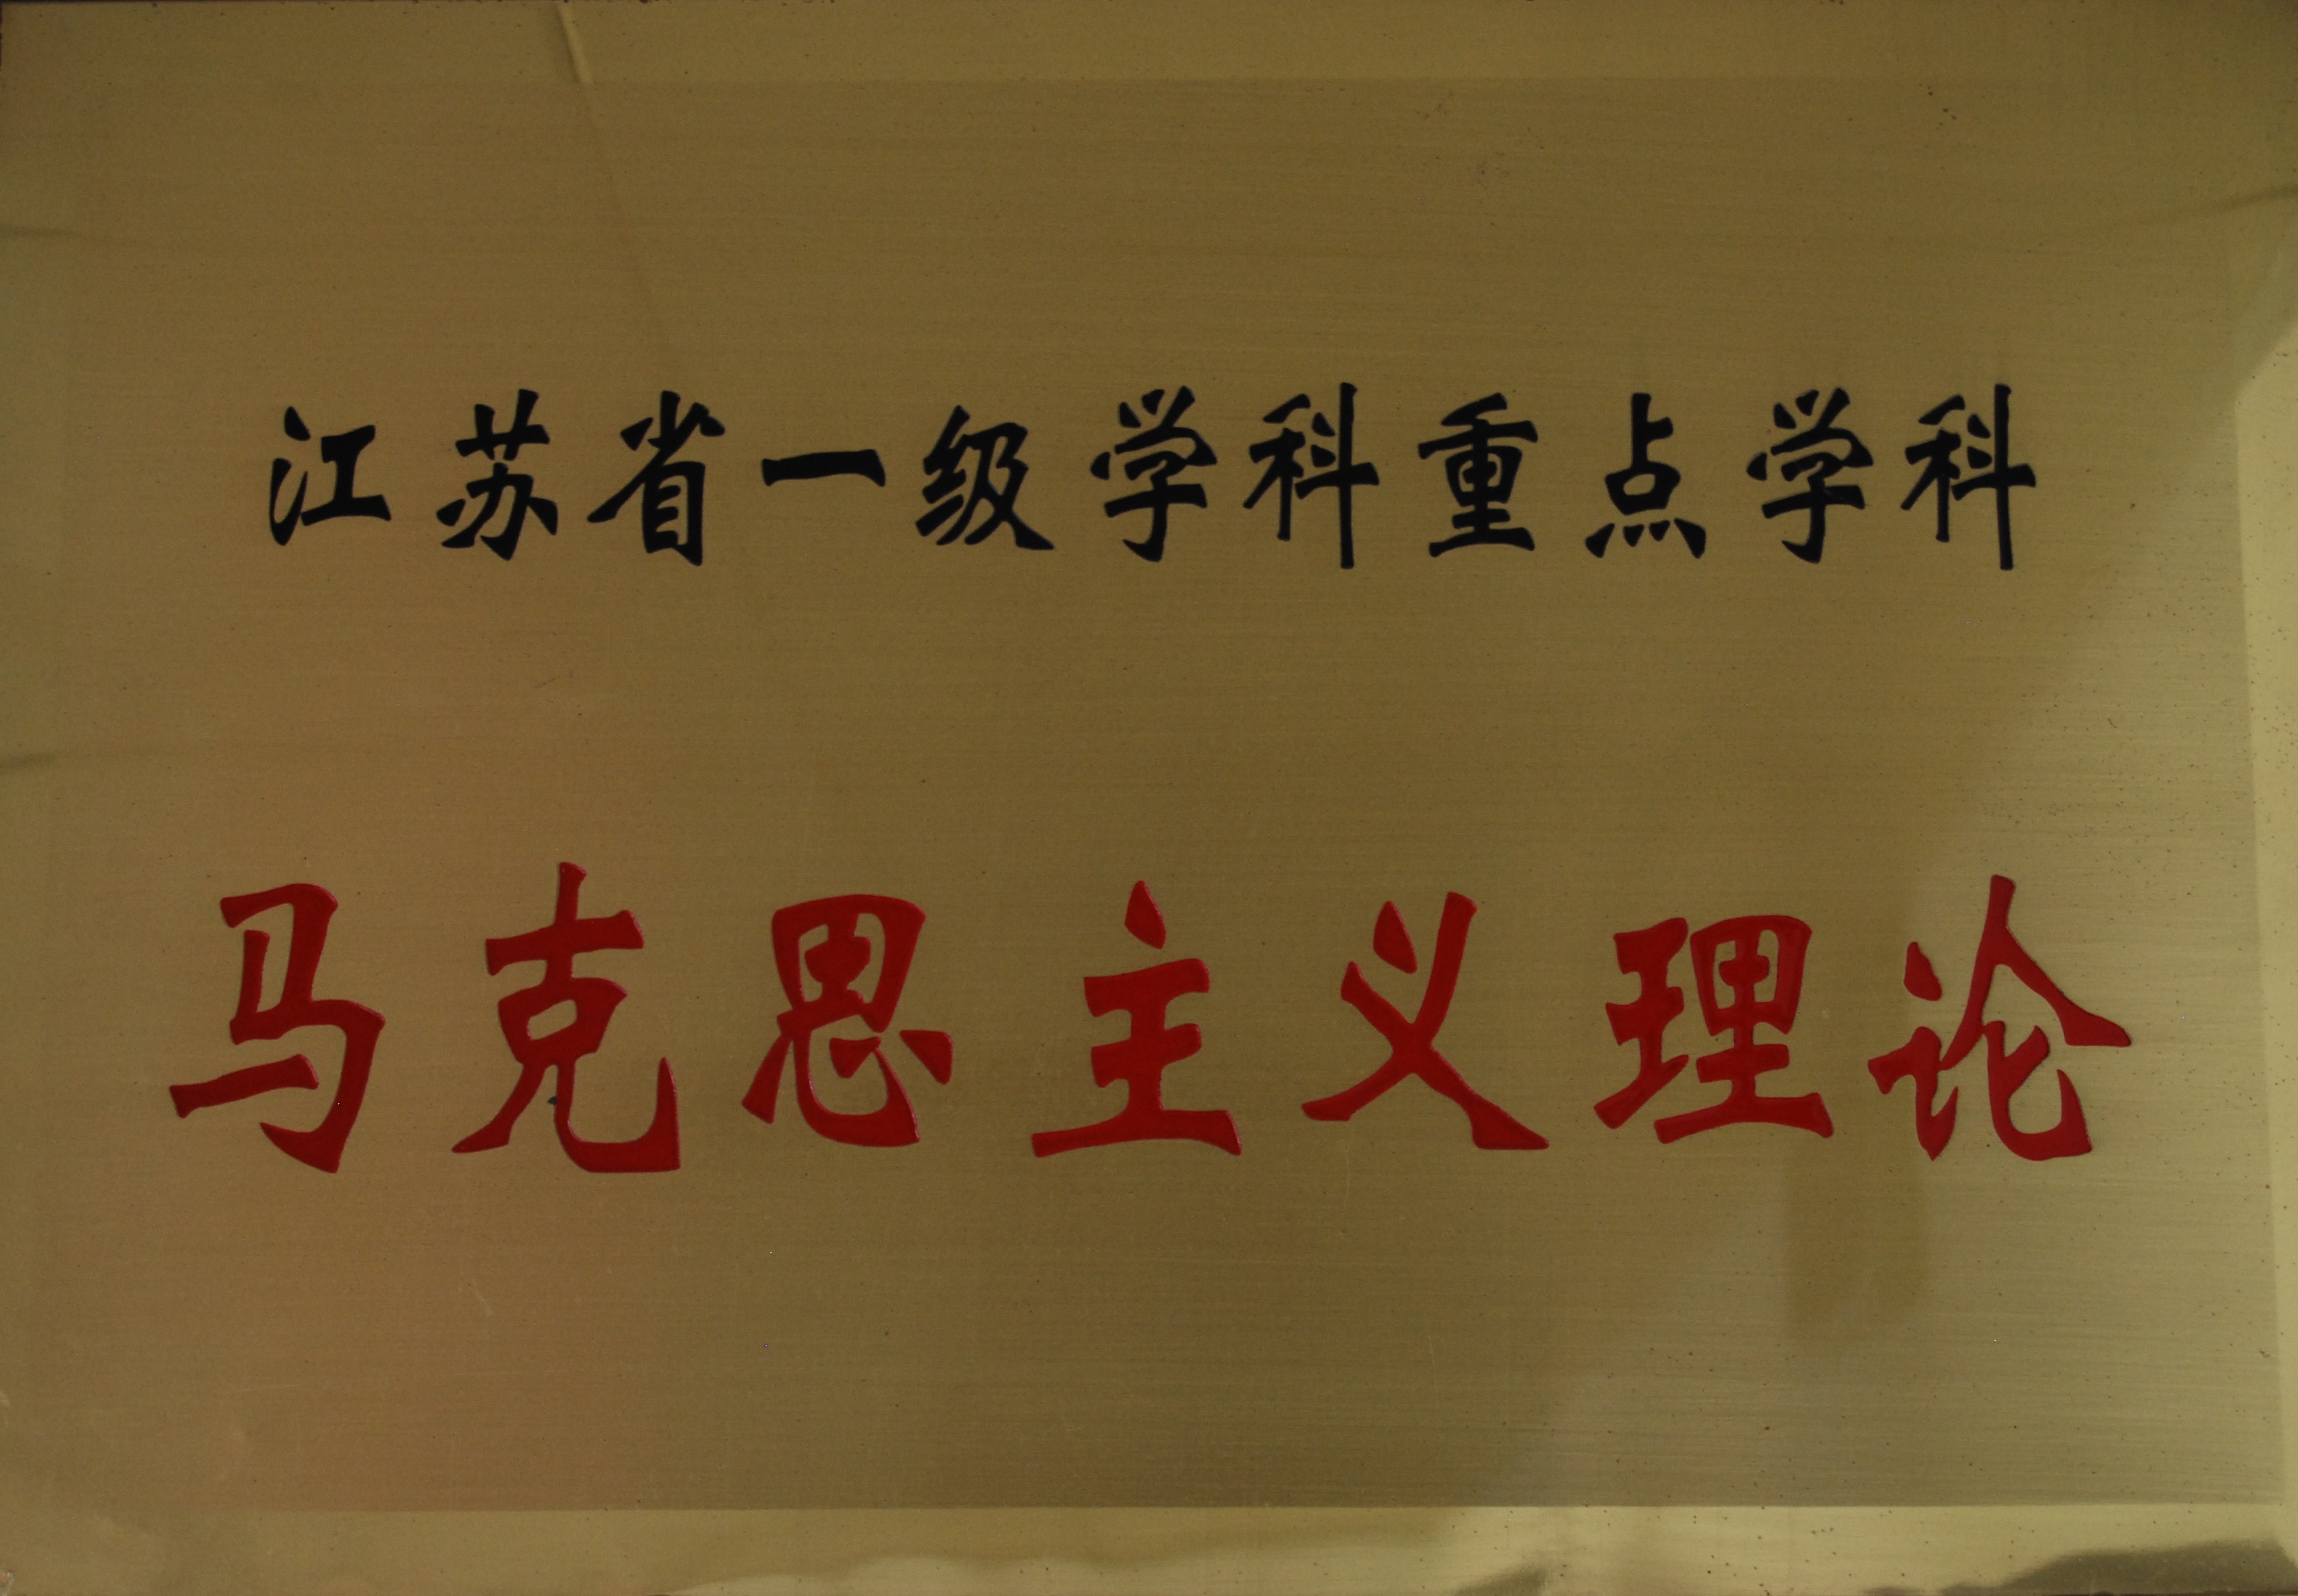 江苏省一级学科重点学科
马克思主义理论